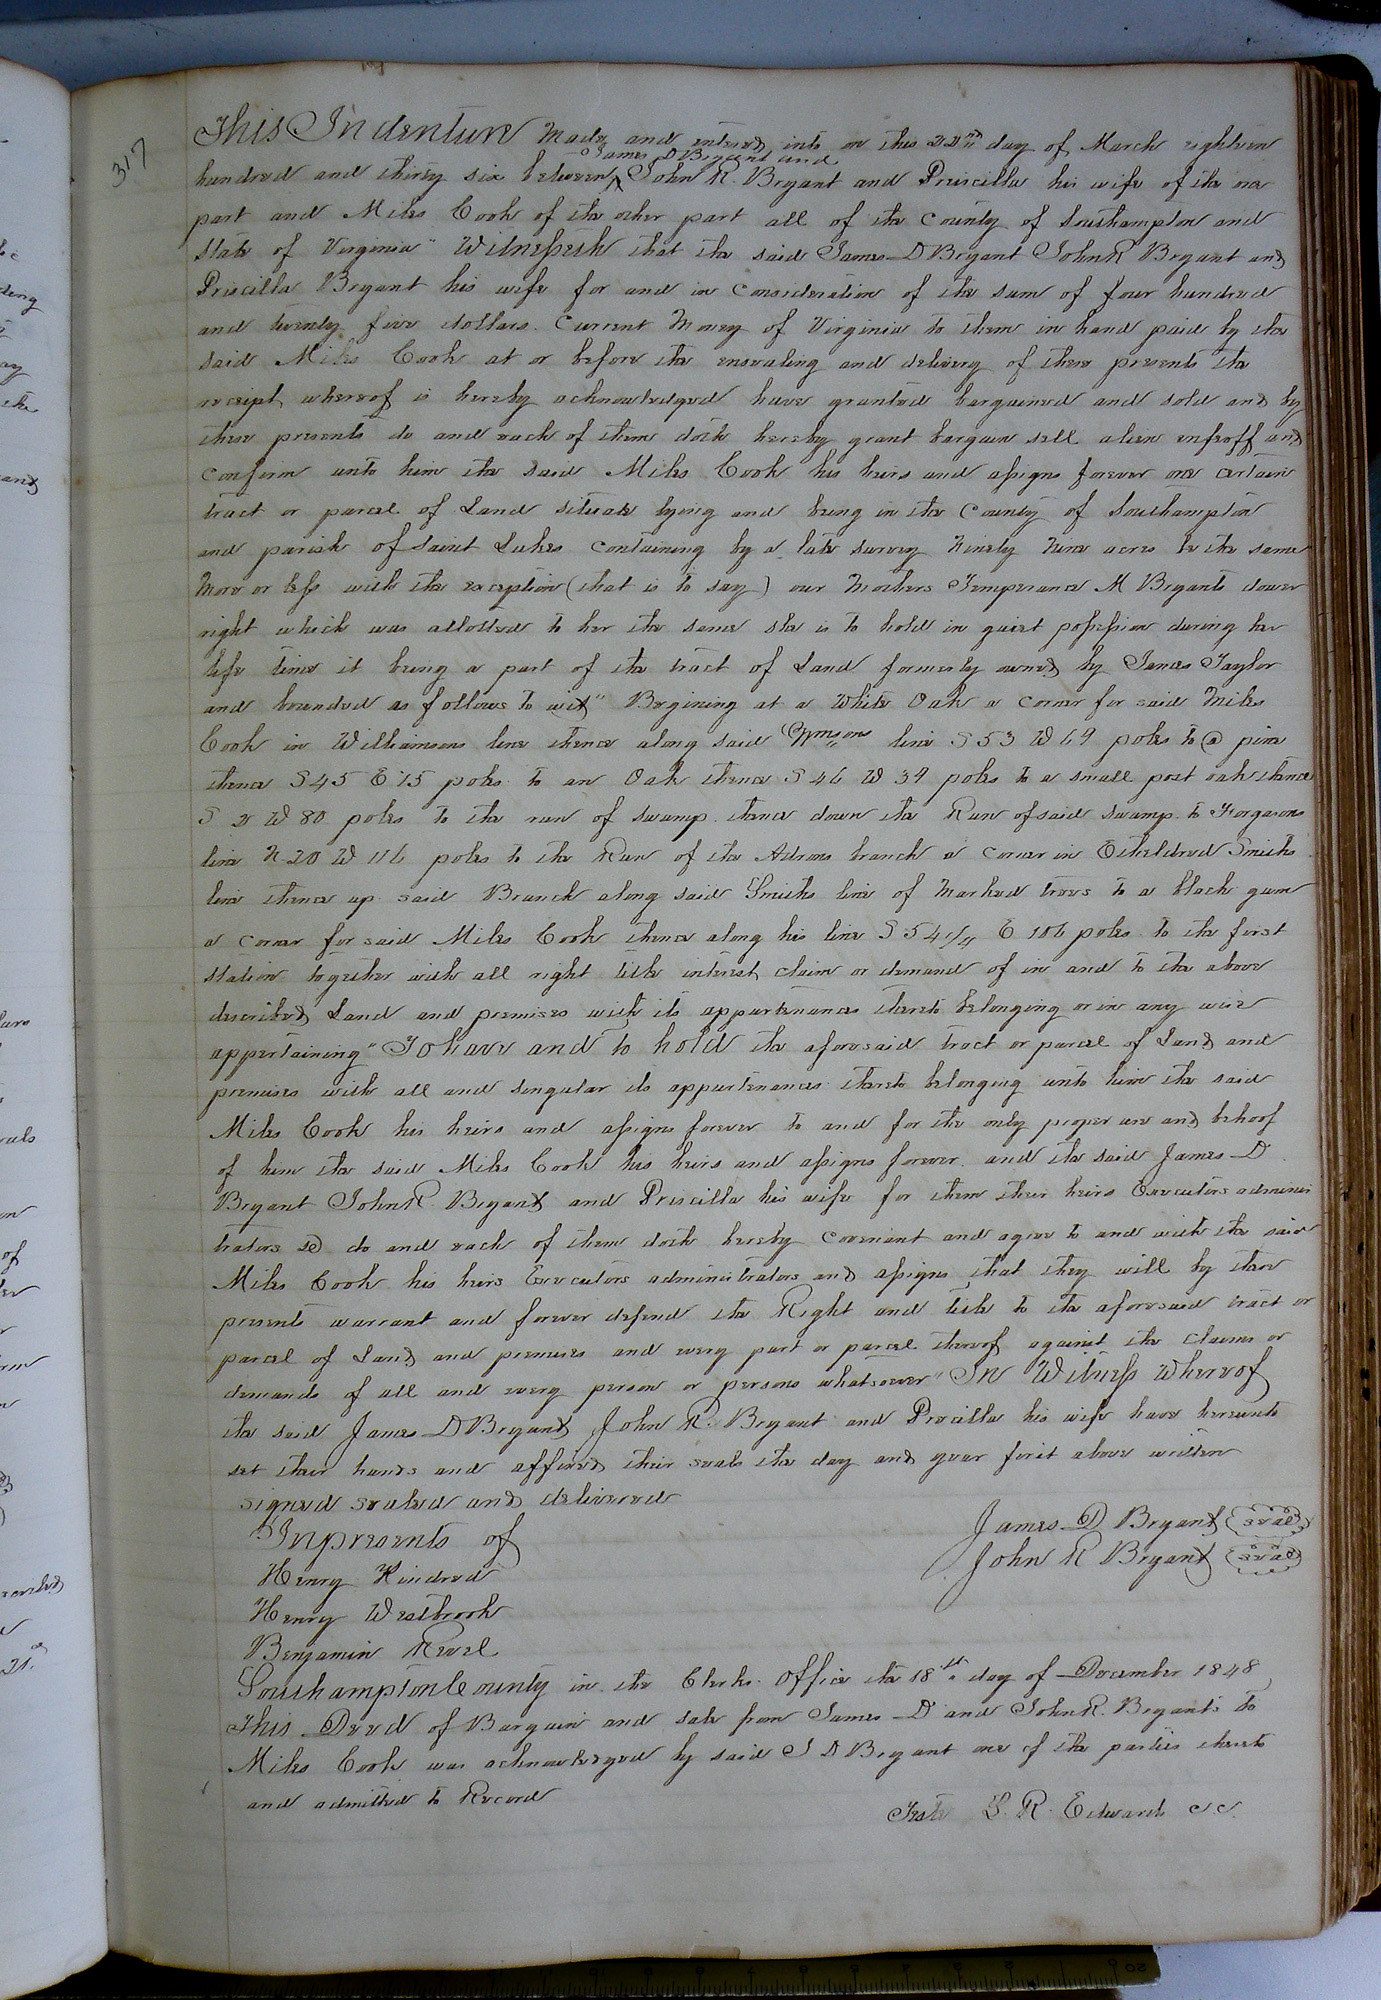 317
This Indenture made and entered into on this 22nd day of March eighteen
James D Bryant and
hundred and thirty six between ^ John R. Bryant and Priscilla his wife of the one
part and Miles Cook of the other part all of the County of Southampton and
State of Virginia" Witnesseth that the said James D Bryant John R Bryant and
Priscilla Bryant his wife for and in consideration of the sum of four hundred
and twenty five dollars. Current Money of Virginia to them in hand paid by the
said Miles Cook at or before the ensealing and delivery of these presents the
receipt whereof is hereby acknowledged have granted bargained and sold and by
these presents do and each of them doth hereby grant bargain sell alien enfeoff and
confirm unto him the said Miles Cook his heirs and assigns forever one certain
tract or parcel of Land situate lying and being in the County of Southampton
and parish of Saint Lukes containing by a late survey Ninety Nine acres be the same
more or less with the exception (that is to say) our Mothers Temperance M Bryants dower
right which was allotted to her the same she is to hold in quiet possession during her
life time it being a part of the tract of Land formerly owned by James Taylor
and bounded as follows to wit" Begining at a White Oak a corner for said Miles
Cook in Williamsons line thence along said Wmsons line S 53 W 69 poles to a pine
thence S 45 E 15 poles to an Oak thence S 46 W 39 poles to a small post oak thence
S 2 W 80 poles to the run of swamp thence down the Run of said swamp to Forgasons
line N 20 W 116 poles to the Run of the branch a corner in Etheldred Smiths
line thence up said Branch along said Smiths line of Marked trees to a black gum
a corner for said Miles Cook thence along his line S 54 1/4 E 106 poles to the first
station together with all right title interest claim or demand of in and to the above
described Land and premises with its appurtenances thereto belonging or in any wise
appertaining" To have and to hold the aforesaid tract or parcel of Land and
premises with all and singular its appurtenances thereto belonging unto him the said
Miles Cook his heirs and assigns forever to and for the only proper use and behoof
of him the said Miles Cook his heirs and assigns forever and the said James D
Bryant John R. Bryant and Priscilla his wife for them their heirs Executors adminis
trators &c do and each of them doth hereby covenant and agree to and with the said
Miles Cook his heirs Executors administrators and assigns that they will by these
presents warrant and forever defend the Right and title to the aforesaid tract or
parcel of Land and premises and every part or parcel thereof against the claims or
demands of all and every person or persons whatsoever" In Witness whereof
the said James D Bryant John R. Bryant and Precilla his wife have hereunto
set their hands and affixed their seals the day and year first above written
signed sealed and delivered
In presents of
James D Bryant seal
John R Bryant seal
Henry Kindred
Henry Westbrook
Benjamin Revel
Southampton County in the Clerks Office the 18th day of December 1848
This Deed of Bargain and sale from James D and John R. Bryants to
Miles Cook was acknowledged by said J D Bryant one of the parties thereto
and admitted to Record
Teste L. R. Edwards CC